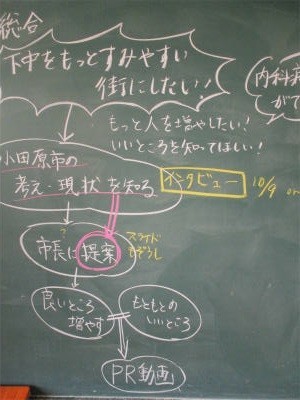 総合
下中をもっとすみやすい
街にしたい!
内科病
がで
もっと人を増やしたい!
いいところを知ってほしい!
小田原市の
考え・現状を知る
インタビュー
10/9 or
?
市長に提案
スライド
もぞうし
良いところ
増やす
もともとの
いいところ
PR動画